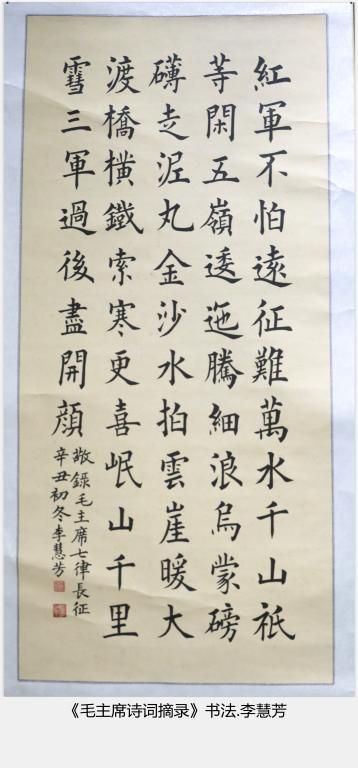 紅軍不怕遠征難萬水千山祇
等閑五嶺逶迤騰細浪烏蒙磅
礴走泥丸金沙水拍雲崖暖大
渡橋橫鐵索寒更喜岷山千里
雪三軍過後盡開顔
敬錄毛主席七律長征
辛丑初冬李慧芳
《毛主席诗词摘录》书法.李慧芳